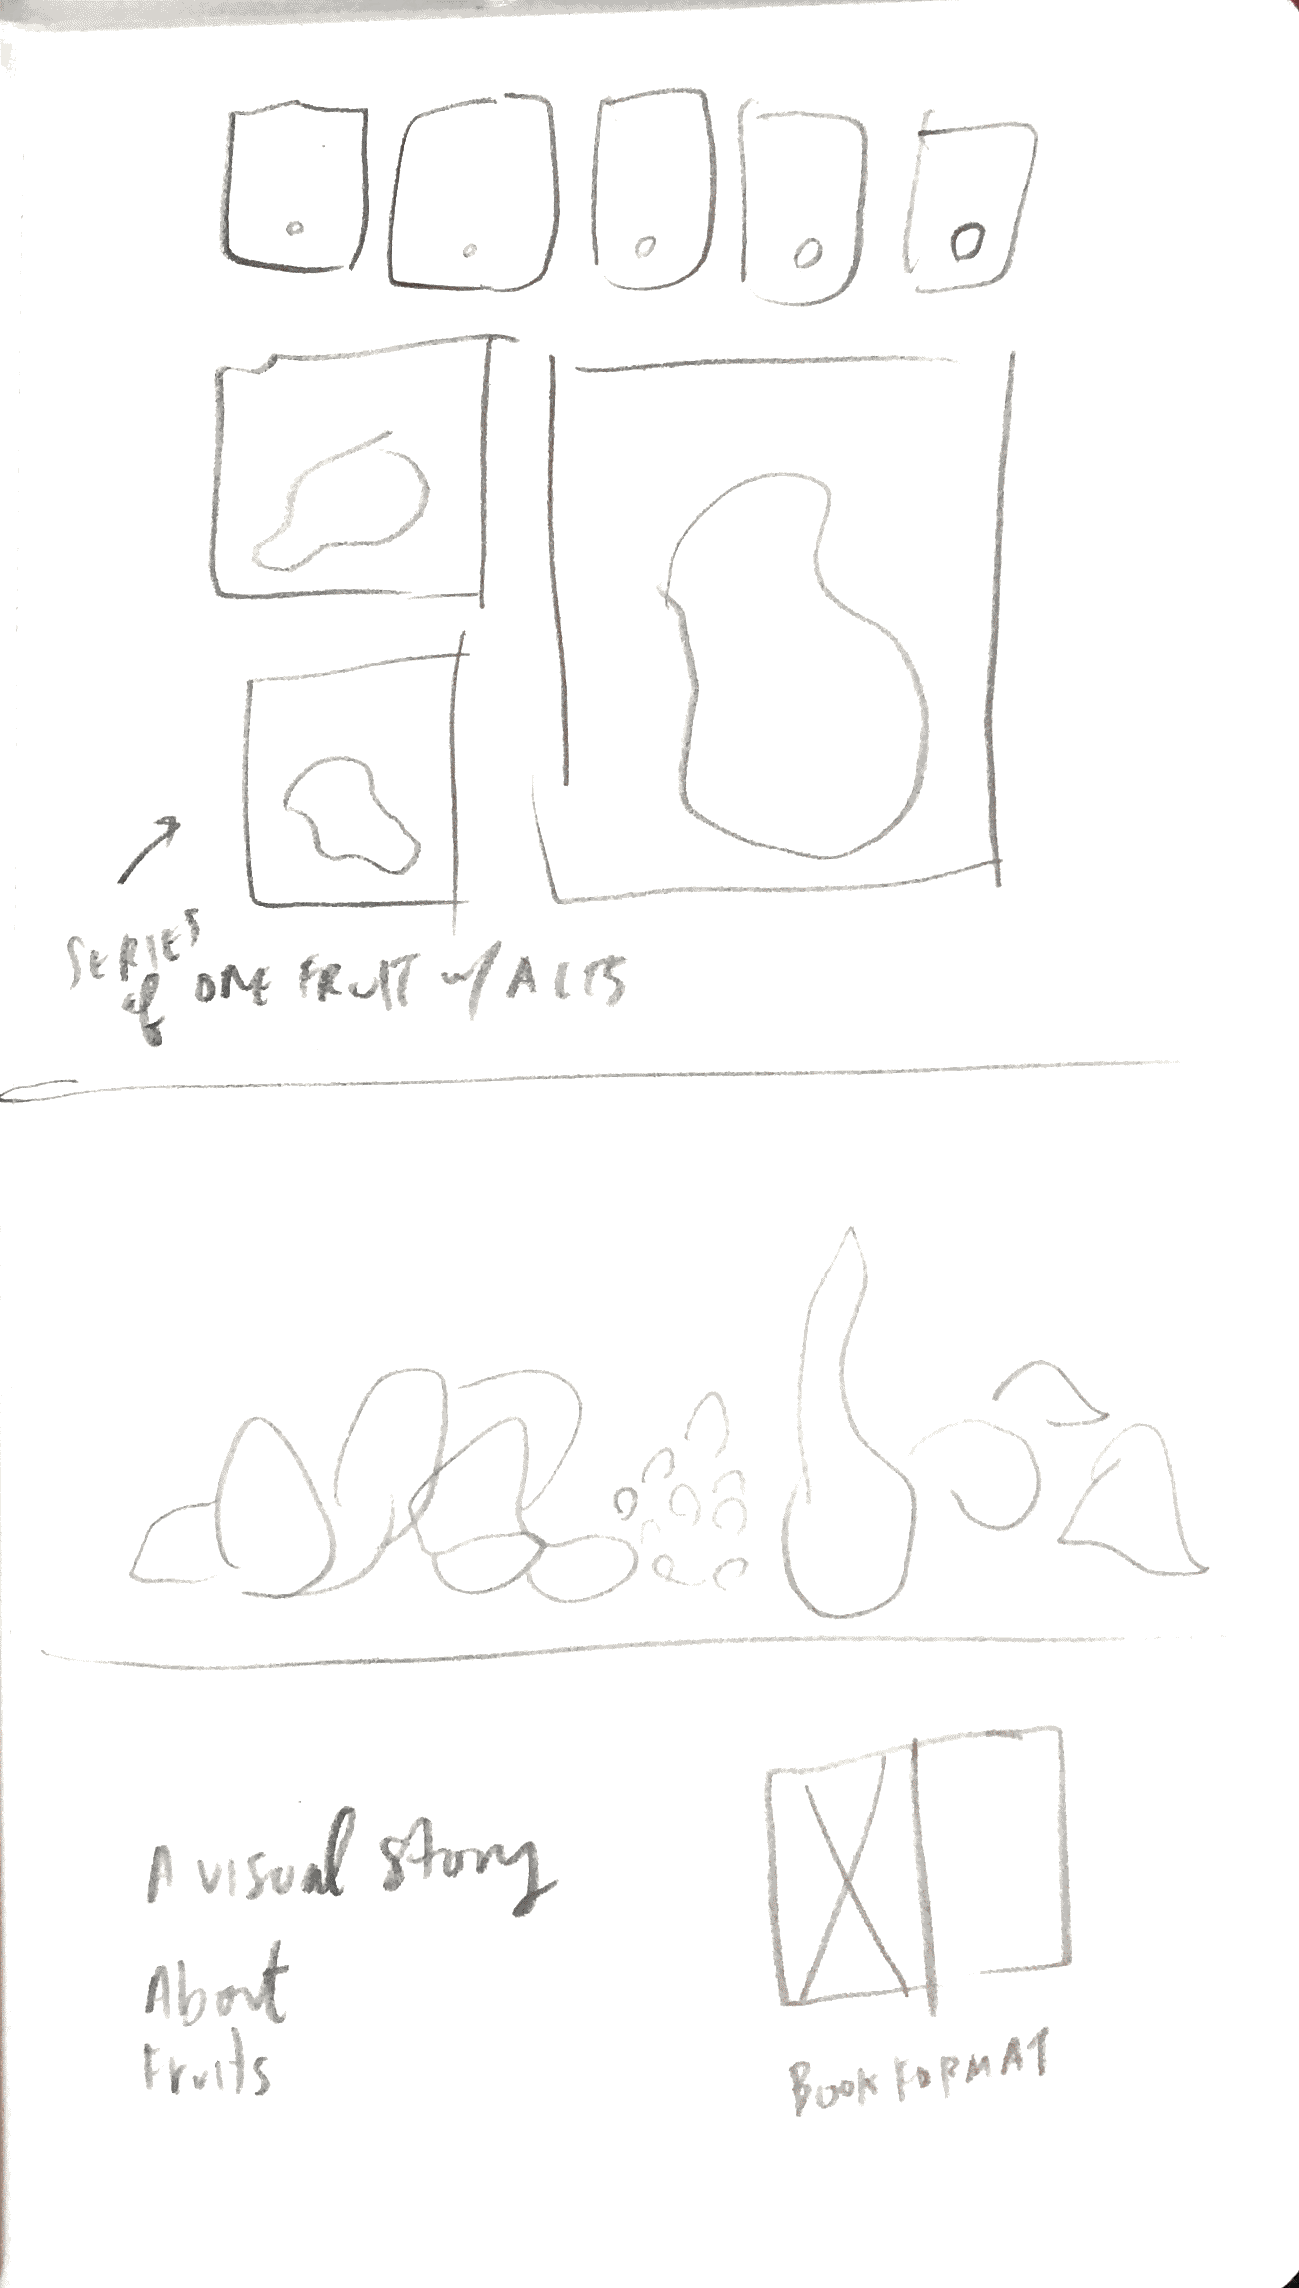 SERIES
of ONE FRUIT w/ ALTS
A visual story
About
Fruits
BOOK FORMAT